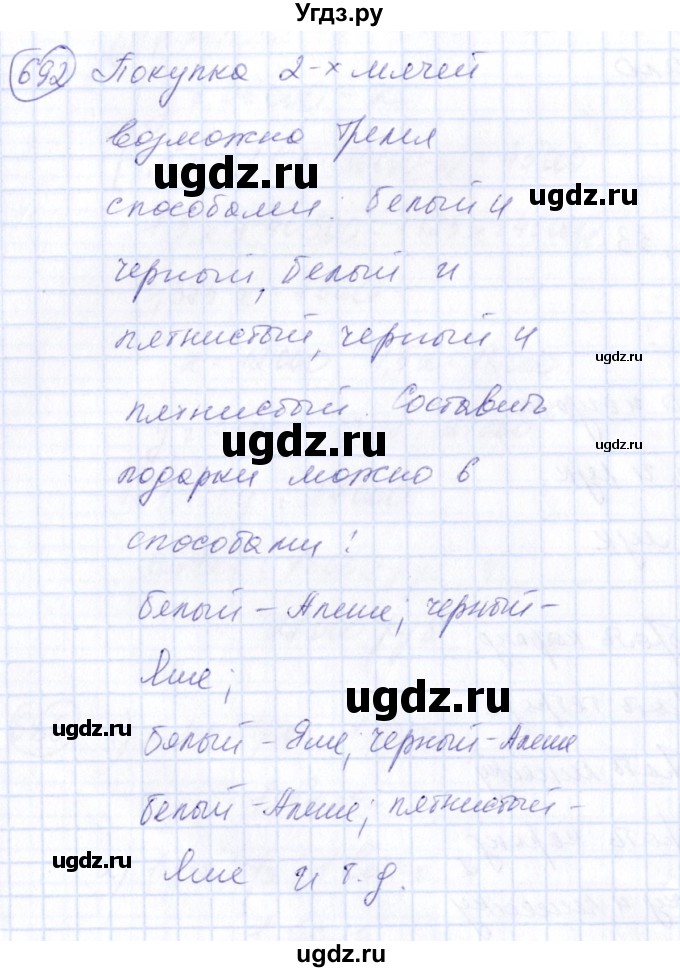 Угдз.ру
692 Покупка 2-х мячей
возможно тремя
ugdz.ru
способами: белый и
ugdz.ru
черный, белый и
пятнистый, черный и
ugdz.ru
пятнистый. Составить
ugdz.ru
ugdz.ru
подарки можно 6
способами:
белый - Алеше; черный -
Яше;
ugdz.ru
ugdz.ru
бялый - Яше; черный - Алеше
белый - Алеше; пятнистый -
ugdz.ru
Яше и т.д.
ugdz.ru
ugdz.ru